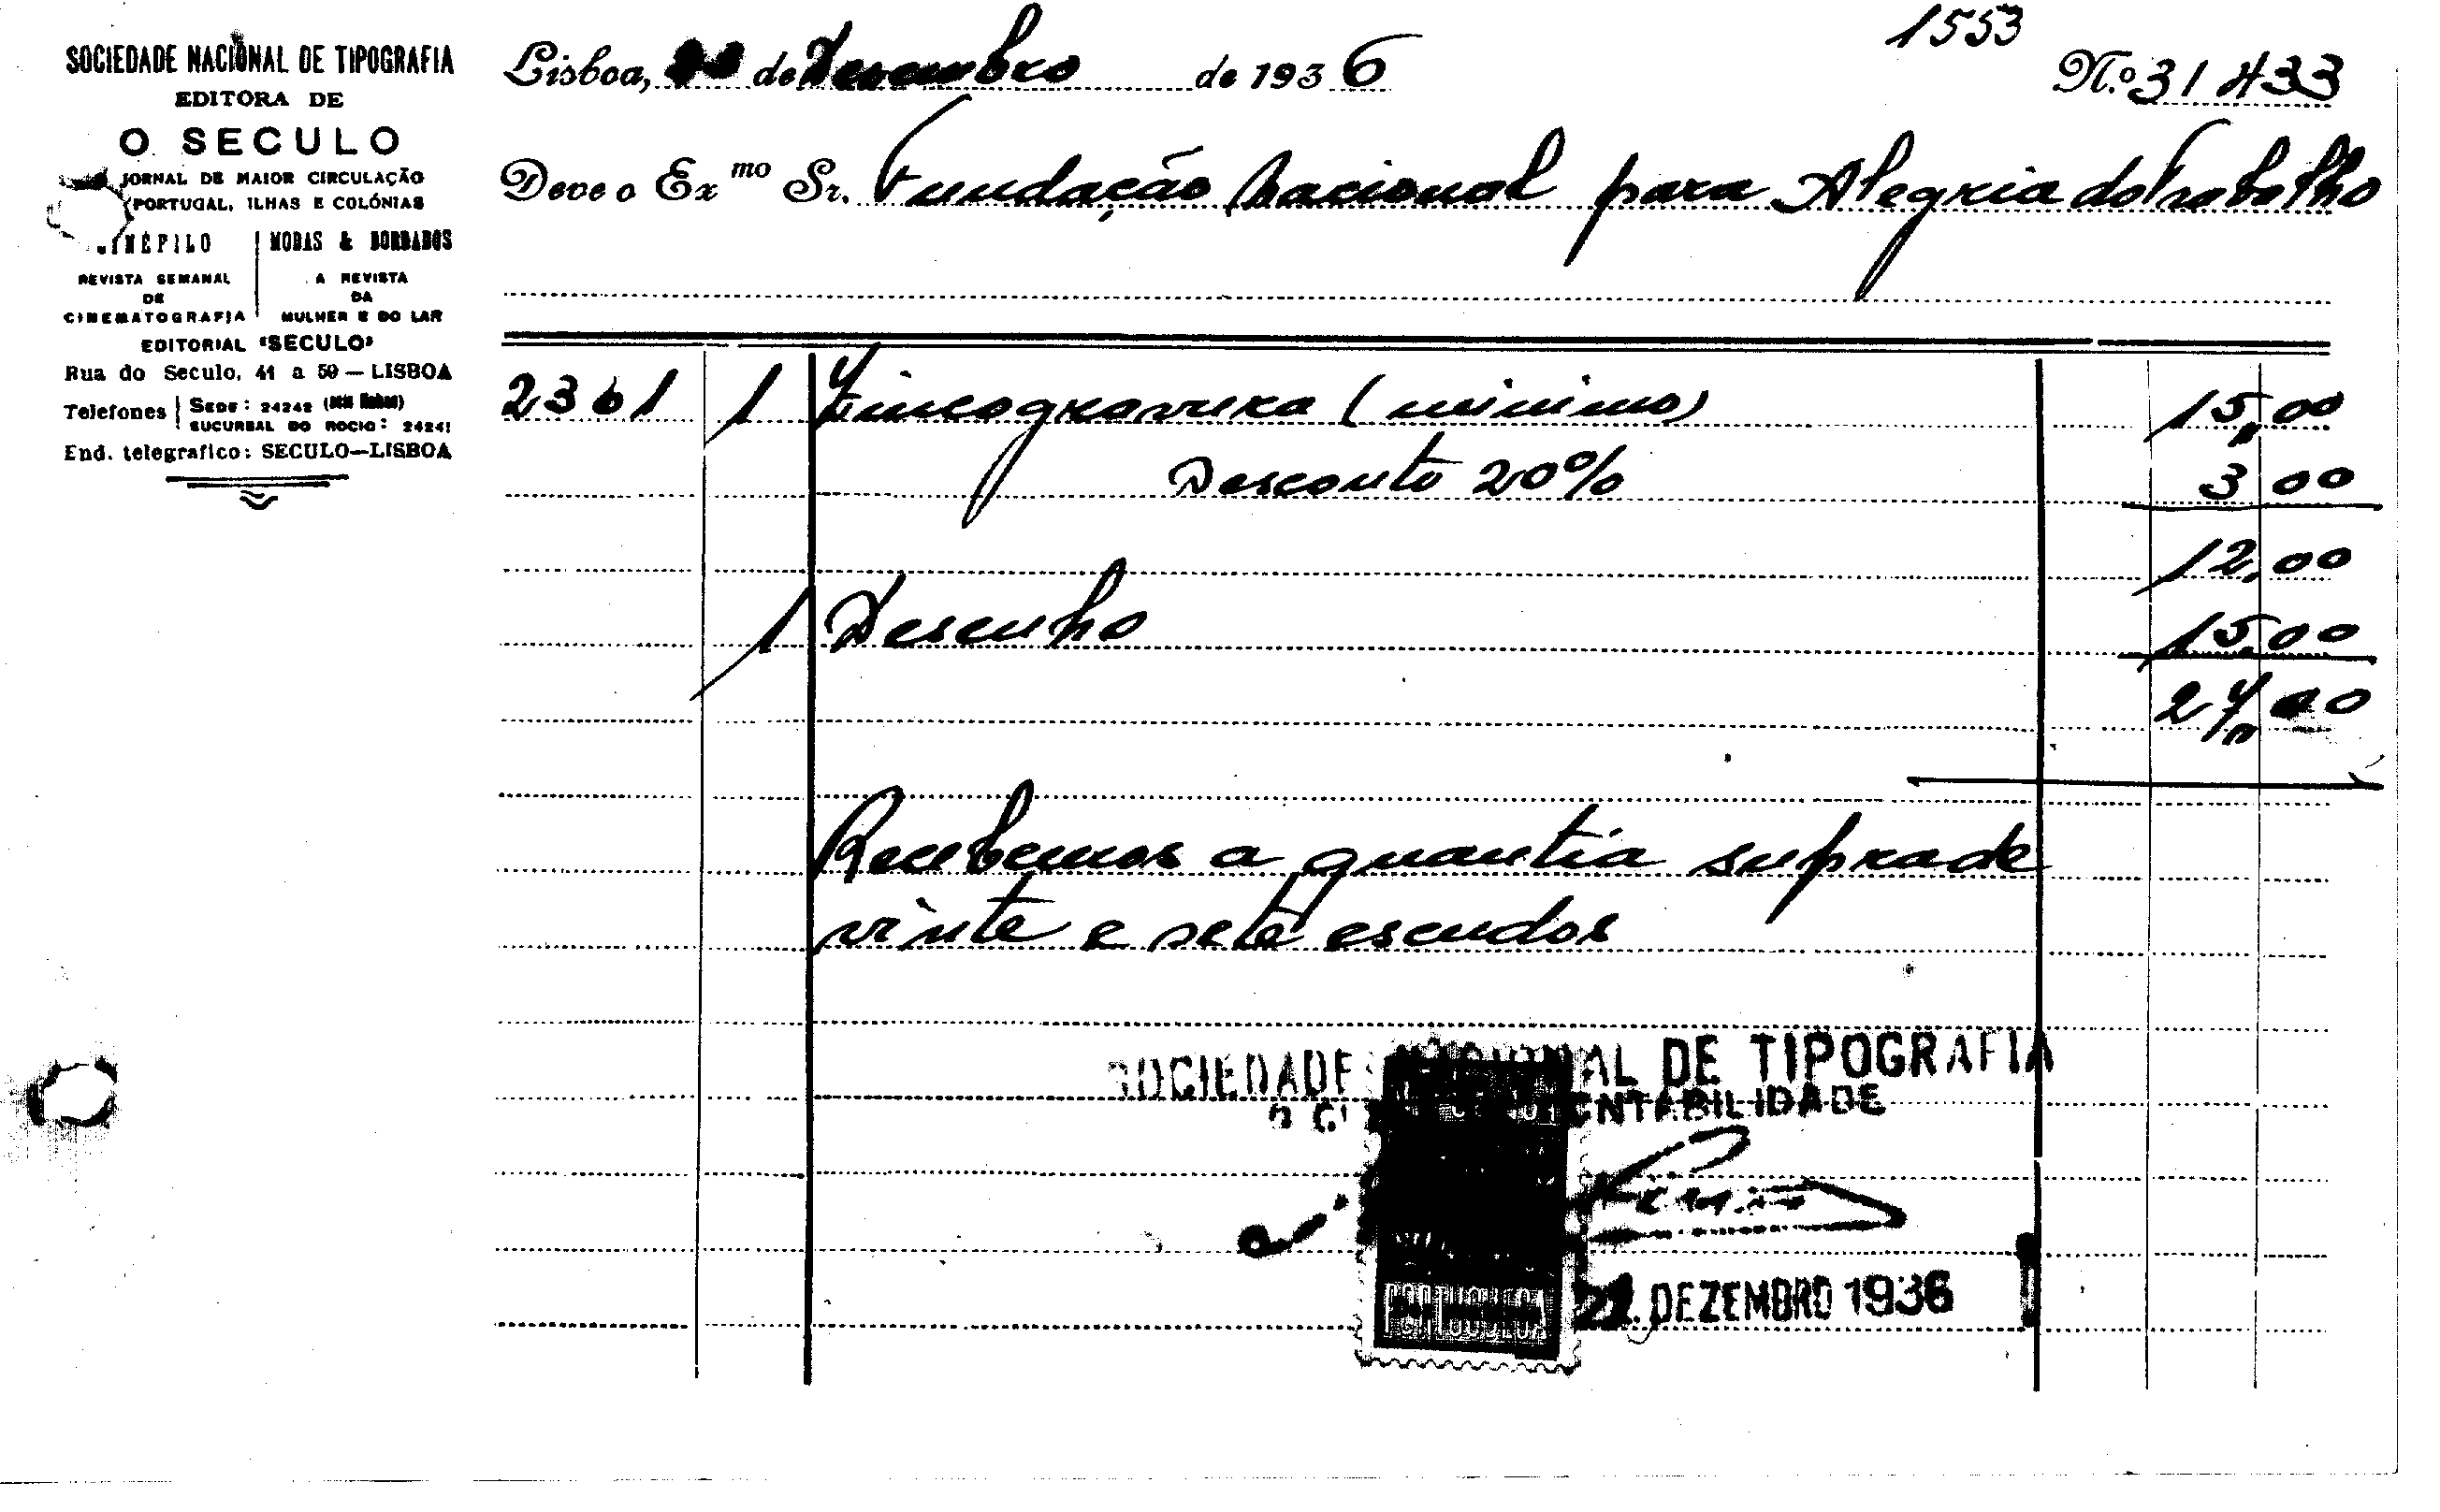 1553
SOCIEDADE NACIONAL DE TIPOGRAFIA
EDITORA DE
O SECULO
JORNAL DE MAIOR CIRCULAÇÃO
PORTUGAL, ILHAS E COLÓNIAS
INÉFILO
REVISTA SEMANAL
DE
CINEMATOGRAFIA
MODAS & BORDADOS
A REVISTA
DA
MULHER E DO LAR
EDITORIAL "SECULO"
Rua do Seculo, 41 a 59 — LISBOA
Telefones
SEDE: 24242
SUCURSAL DO ROCIO: 24241
End. telegrafico: SECULO—LISBOA
Lisboa, de Dezembro de 1936
N.º 31433
Deve o Ex.mo Sr. Fundação Nacional para Alegria do Trabalho
2361 1 Zincogravura (minimo) 15,00
Desconto 20% 3 00
12,00
1 Desenho 15,00
27,00
Recebemos a quantia supra de
vinte e sete escudos
SOCIEDADE NACIONAL DE TIPOGRAFIA
CONTABILIDADE
DEZEMBRO 1936